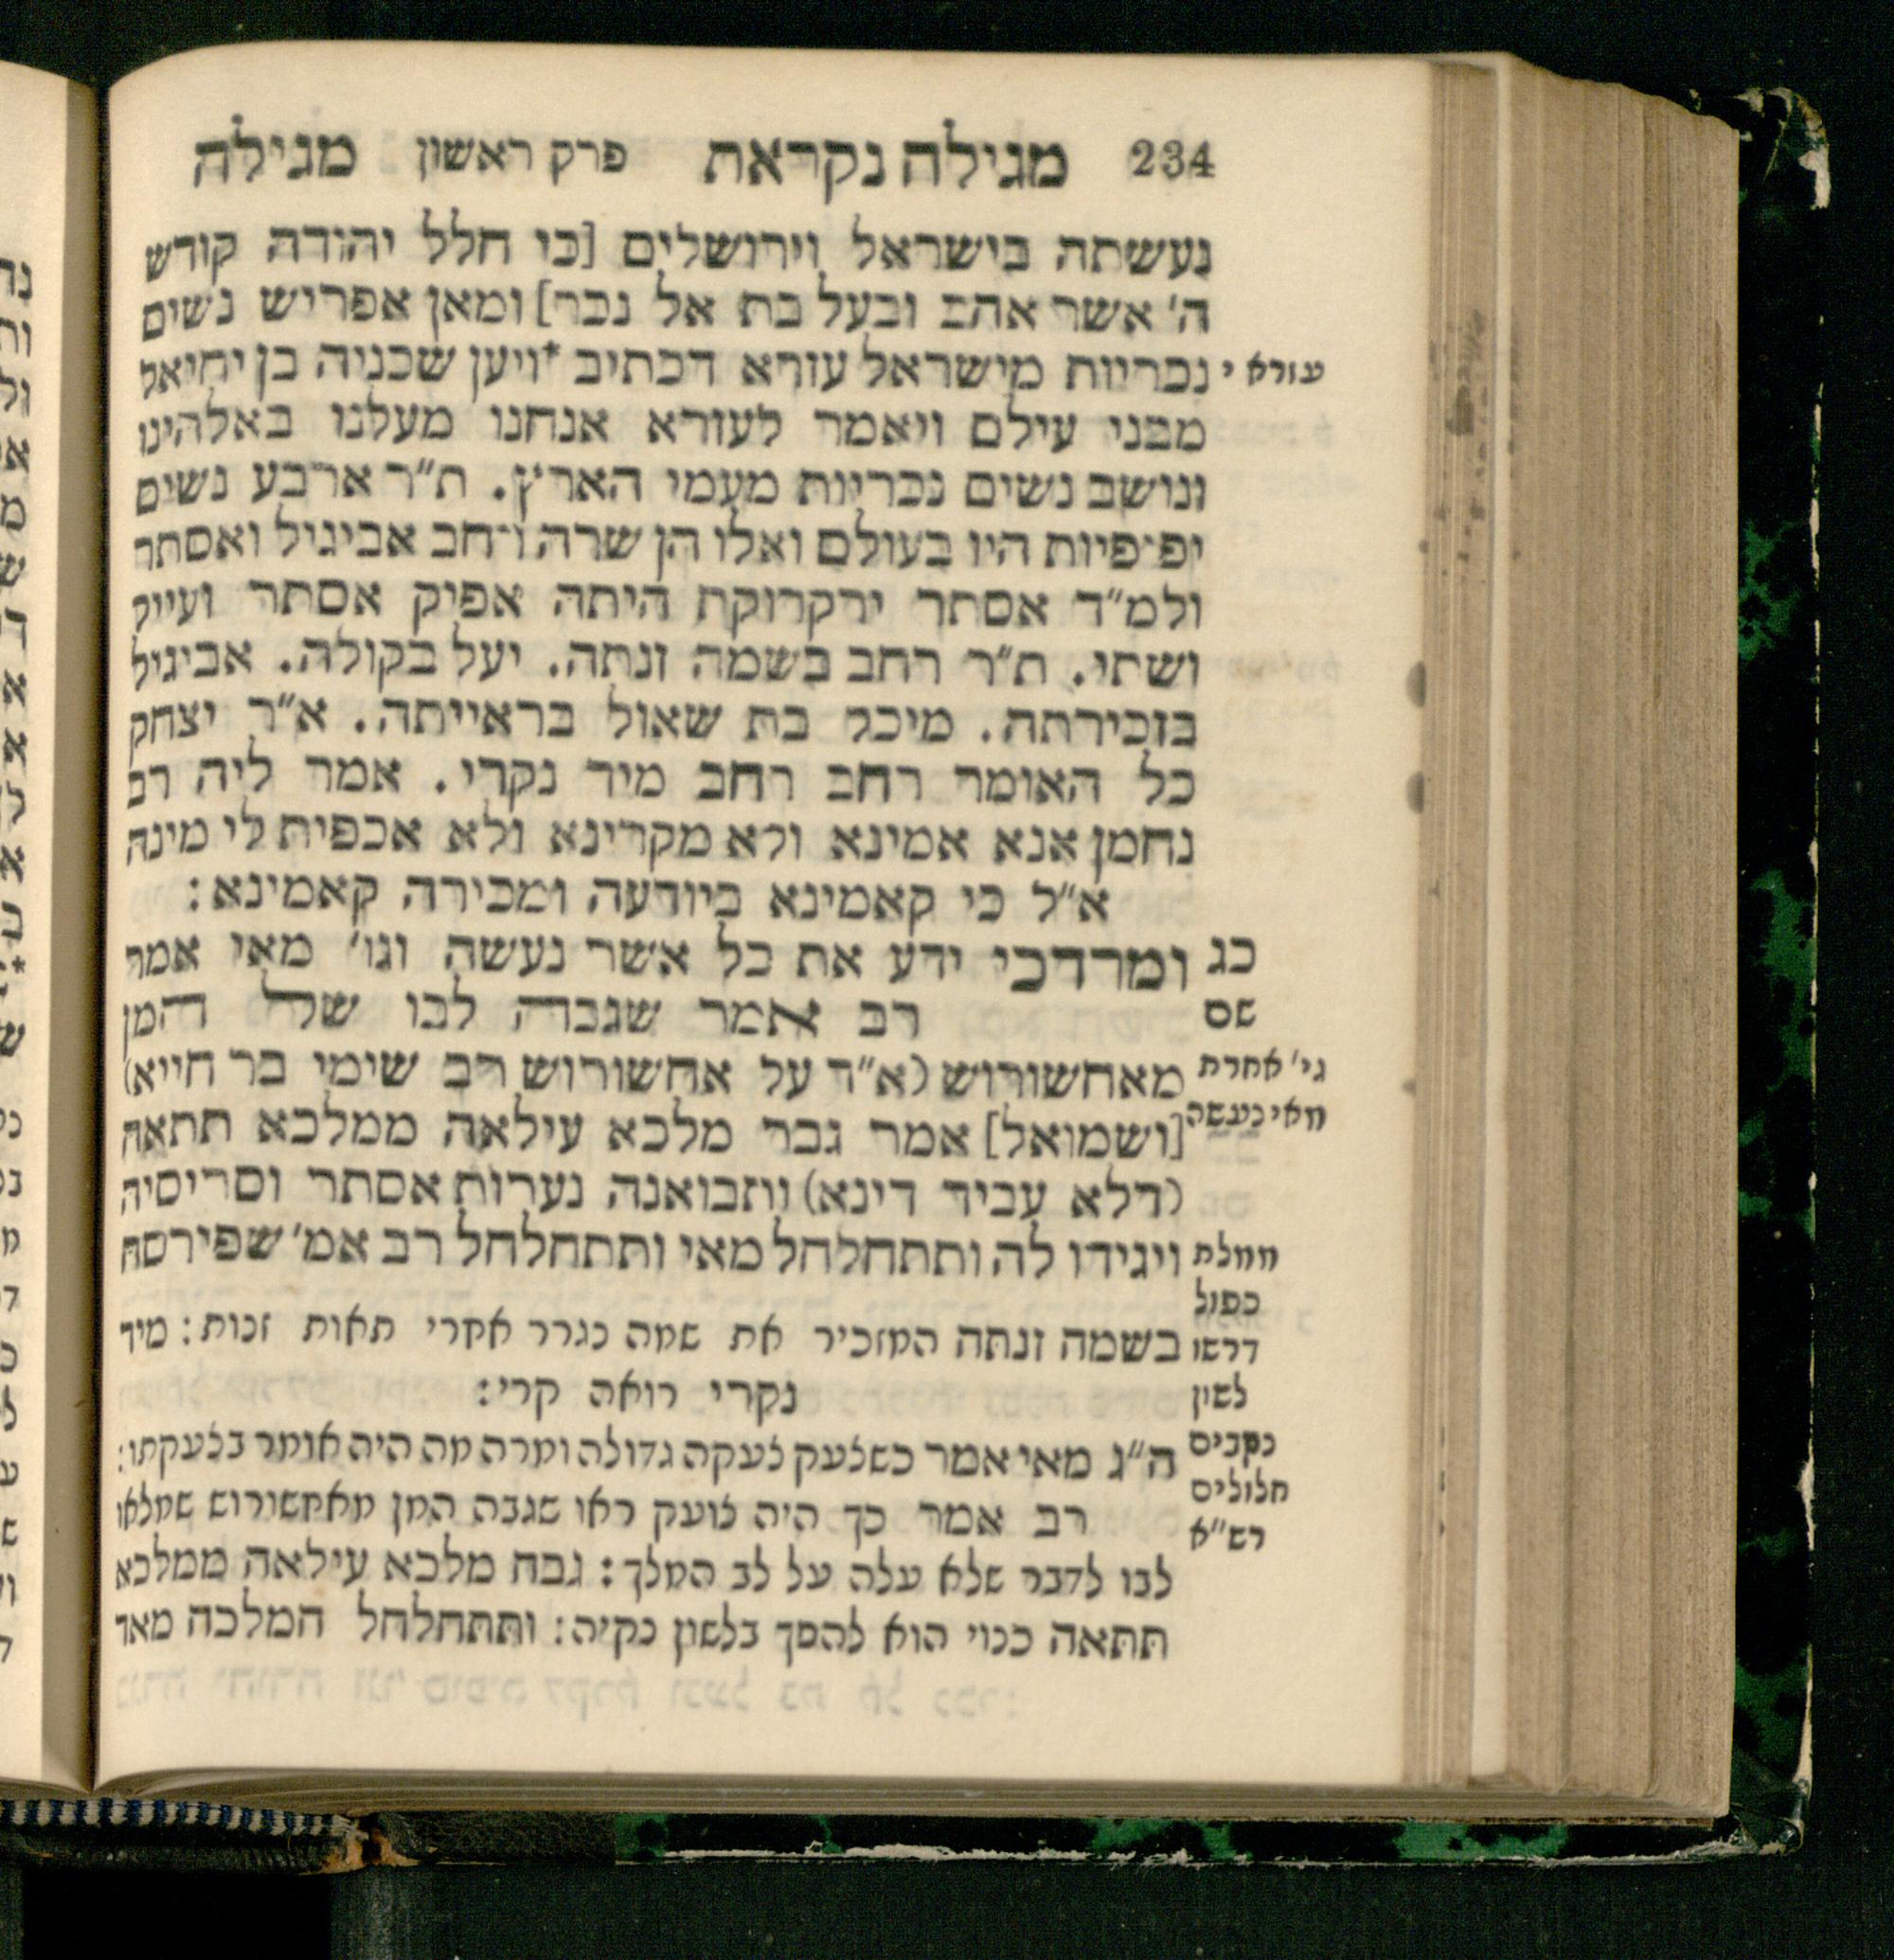 234 מגילה נקראת פרק ראשון מגילה
נעשתה בישראל וירושלים [כי חלל יהודה קודש
ה׳ אשר אהב ובעל בת אל נכר] ומאן אפריש נשים
עזרא י נכריות מישראל עזרא דכתיב *ויען שכניה בן יחיאל
מבני עילם ויאמר לעזרא אנחנו מעלנו באלהינו
ונושב נשים נכריות מעמי הארץ. ת״ר ארבע נשים
יפיפיות היו בעולם ואלו הן שרה ורחב אביגיל ואסתר
ולמ״ד אסתר ירקרוקת היתה אפיק אסתר ועייל
ושתי. ת״ר רחב בשמה זנתה. יעל בקולה. אביגיל
בזכירתה. מיכל בת שאול בראייתה. א״ר יצחק
כל האומר רחב רחב מיד נקרי. אמר ליה רב
נחמן אנא אמינא ולא מקרינא ולא אכפית לי מינה
א״ל כי קאמינא ביודעה ומכירה קאמינא:
כג ומרדכי ידע את כל אשר נעשה וגו׳ מאי אמר
שם רב אמר שגבה לבו של המן
גי׳ אחרת מאחשורוש (א״ד על אחשורוש רב שימי בר חייא)
מאי נעשה [ושמואל] אמר גבר מלכא עילאה ממלכא תתאה
(דלא עביד דינא) ותבואנה נערות אסתר וסריסיה
ממלת ויגידו לה ותתחלחל מאי ותתחלחל רב אמ׳ שפירסה
כפול
דרשו בשמה זנתה המזכיר את שמה נגרר אחרי תאות זנות: מיד
לשון נקרי רואה קרי:
נקבים ה״ג מאי אמר כשצעק צעקה גדולה ומרה מה היה אומר בצעקתו:
חלולים
רב אמר כך היה צועק ראו שגבה המן מאחשורוש שמלאו
רש״א
לבו לדבר שלא עלה על לב המלך: גבה מלכא עילאה ממלכא
תתאה כנוי הוא להפך בלשון נקיה: ותתחלחל המלכה מאד